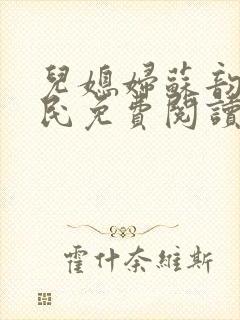 兒媳婦蘇韵
民免費閱讀
霍什奈維斯